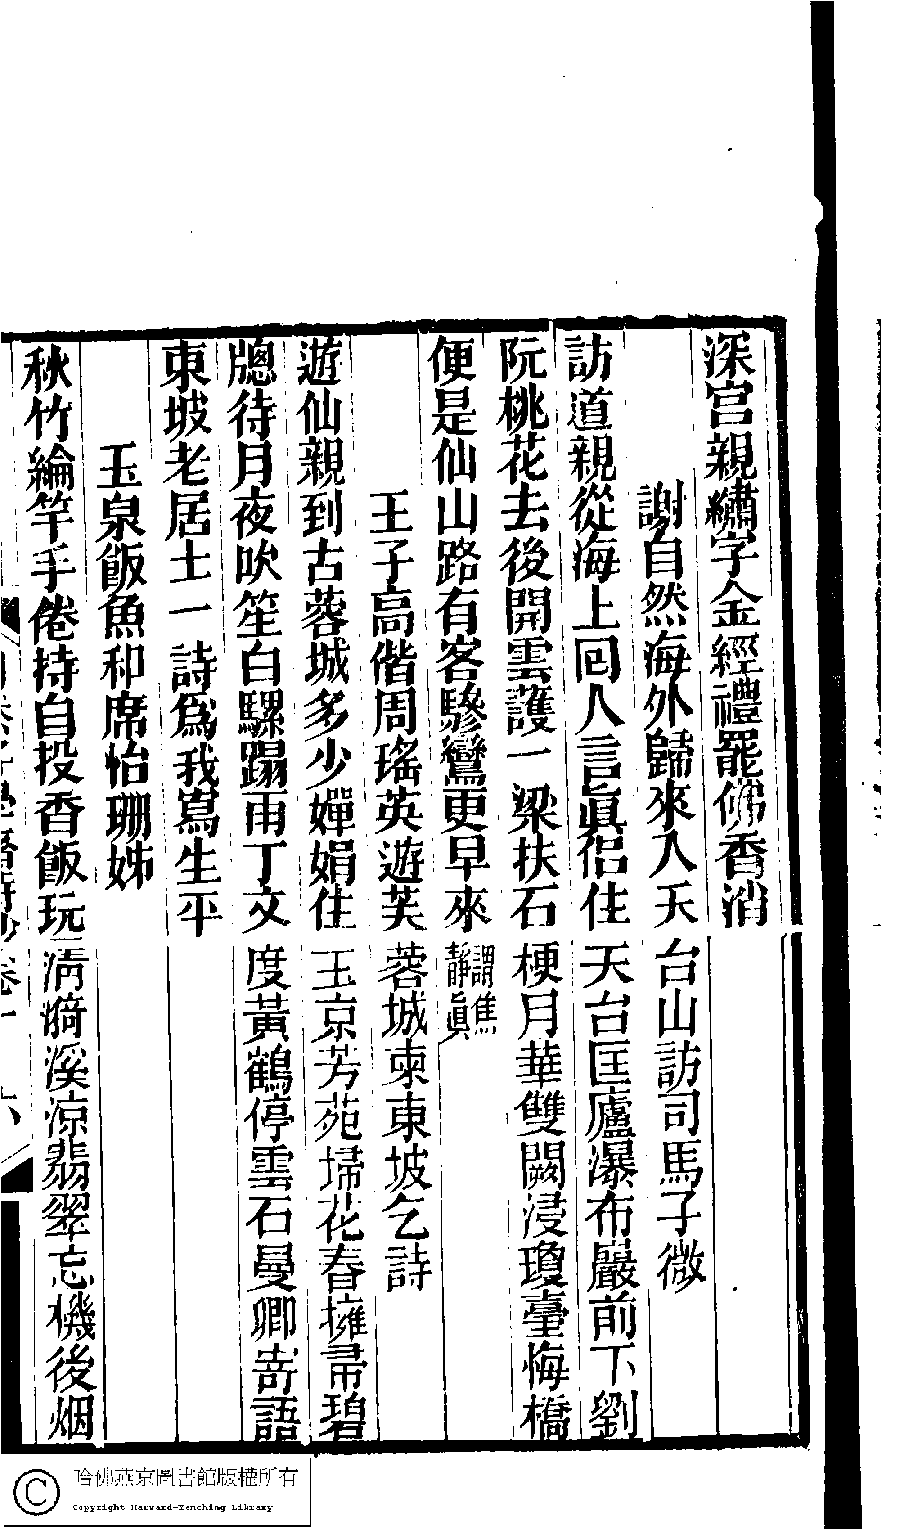 深宫親繡字金經禮罷佛香消
謝自然海外歸來入天台山訪司馬子微
訪道親從海上回人言眞侶住天台匡廬瀑布巖前下劉
阮桃花去後開雲護一梁扶石梗月華雙闕浸瓊臺悔橋
便是仙山路有客驂鸞更早來謂焦靜眞
王子高偕周瑤英遊芙蓉城柬東坡乞詩
遊仙親到古蓉城多少嬋娟住玉京芳苑埽花春擁帚碧
牕待月夜吹笙白騾蹋雨丁文度黃鶴停雲石曼卿寄語
東坡老居士一詩爲我寫生平
玉泉飯魚和席怡珊姊
秋竹綸竿手倦持自投香飯玩清漪溪涼翡翠忘機後烟
哈佛燕京圖書館版權所有
Copyright Harvard-Yenching Library